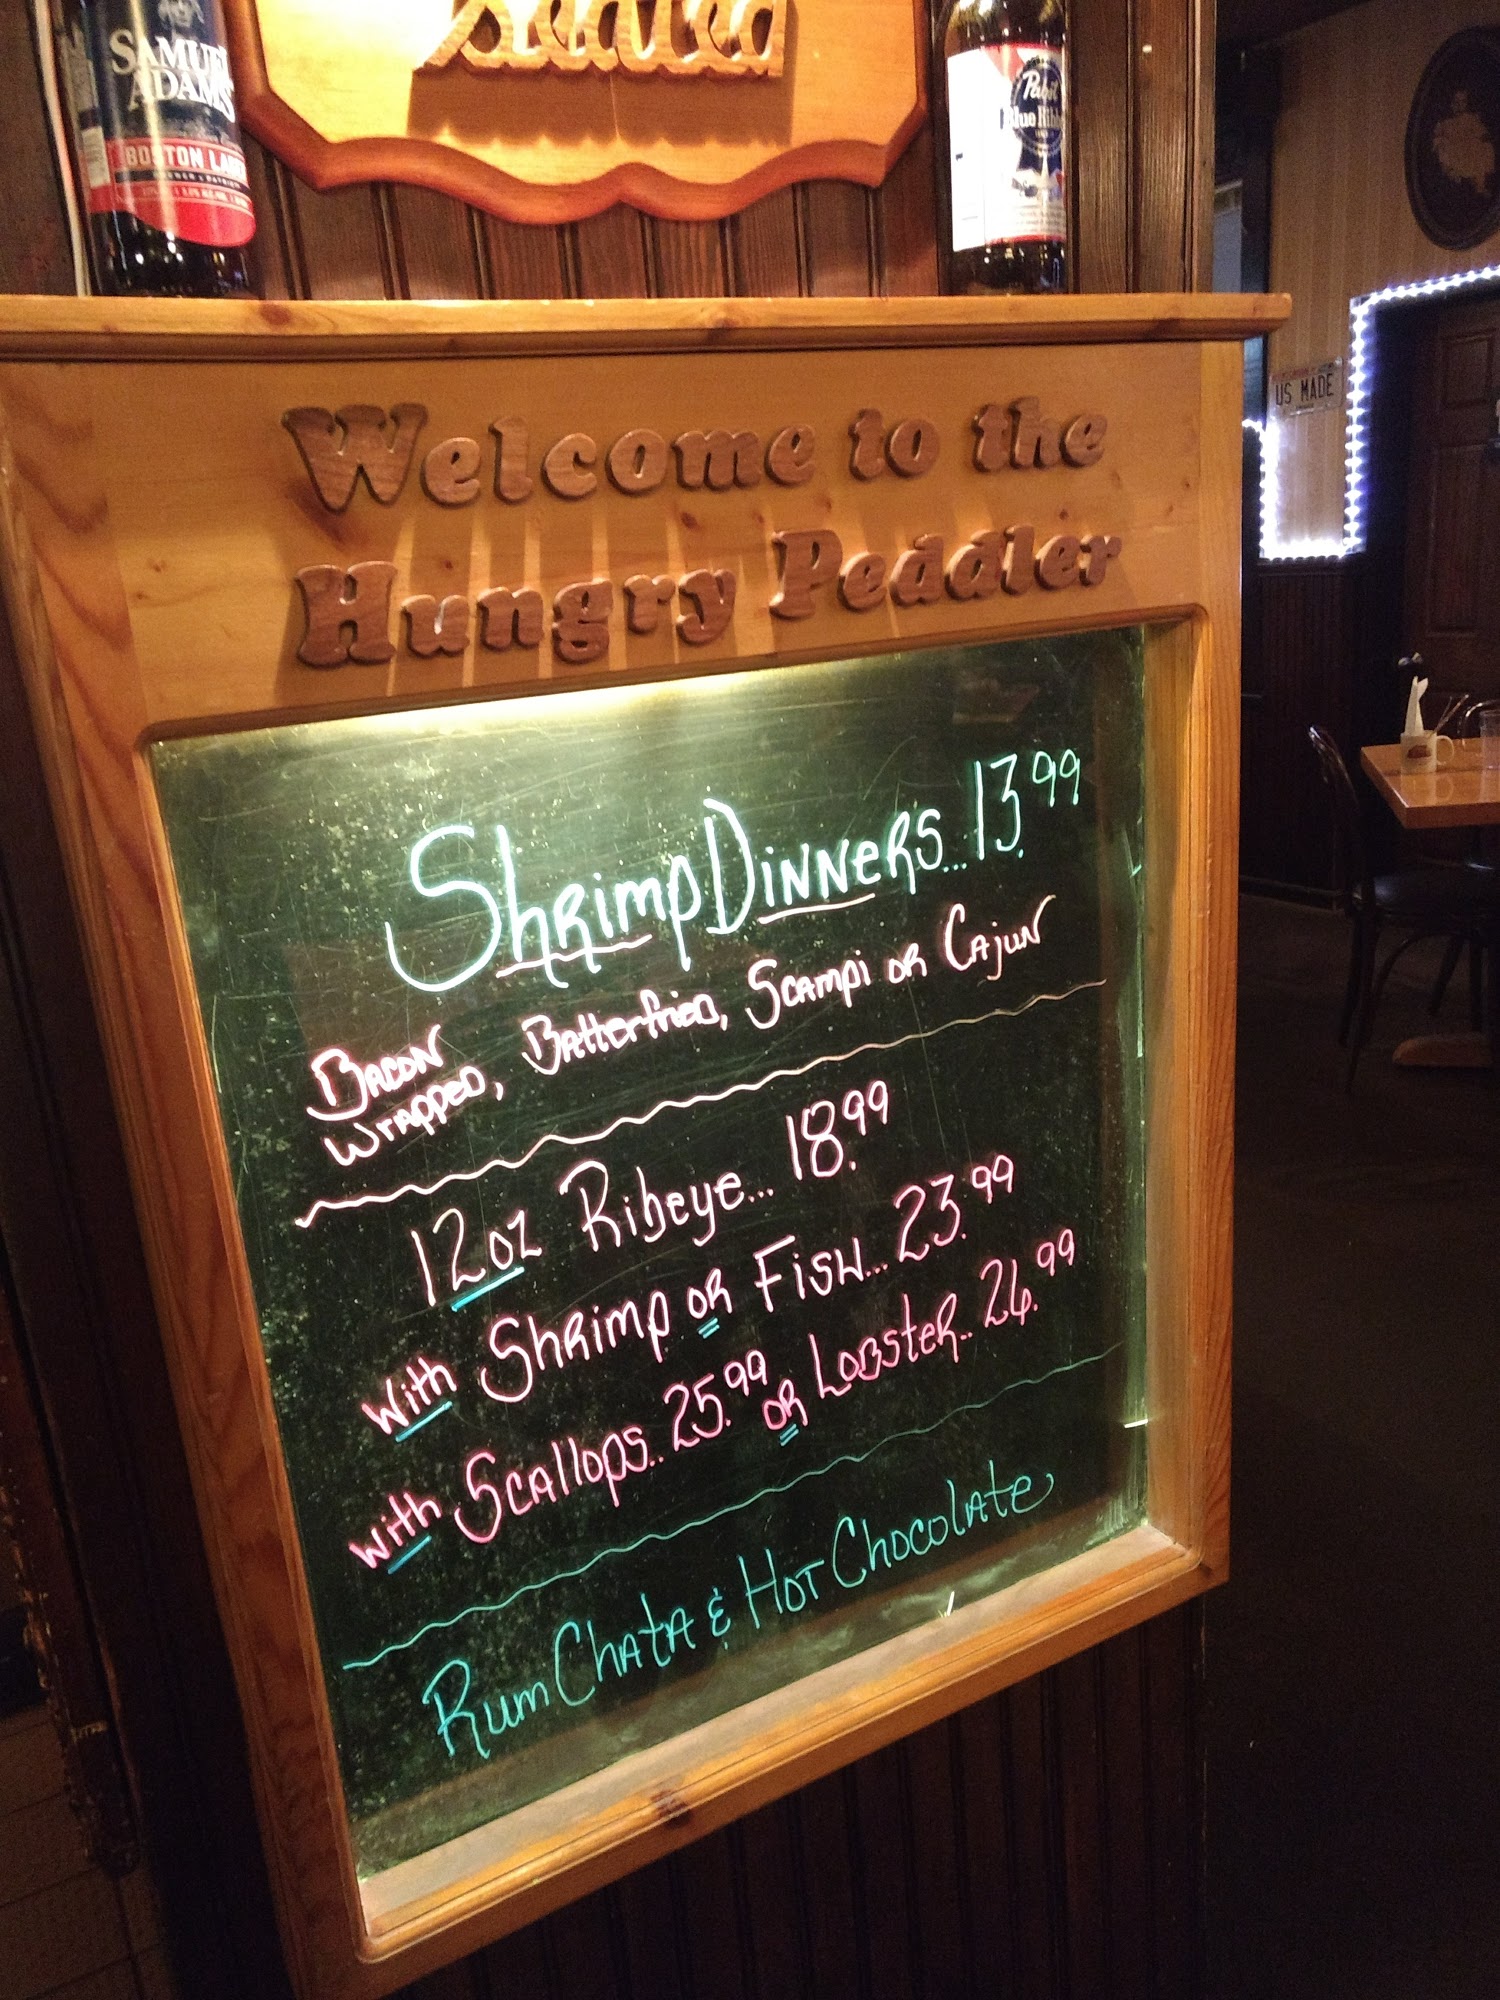 seated
SAMUEL
ADAMS
BOSTON LAGER
Pabst
Blue Ribbon
US MADE
Welcome to the
Hungry Peddler
Shrimp Dinners... 13.99
Bacon
Wrapped, Batterfried, Scampi or Cajun
12oz Ribeye... 18.99
with Shrimp or Fish... 23.99
with Scallops.. 25.99 or Lobster.. 26.99
RumChata & Hot Chocolate